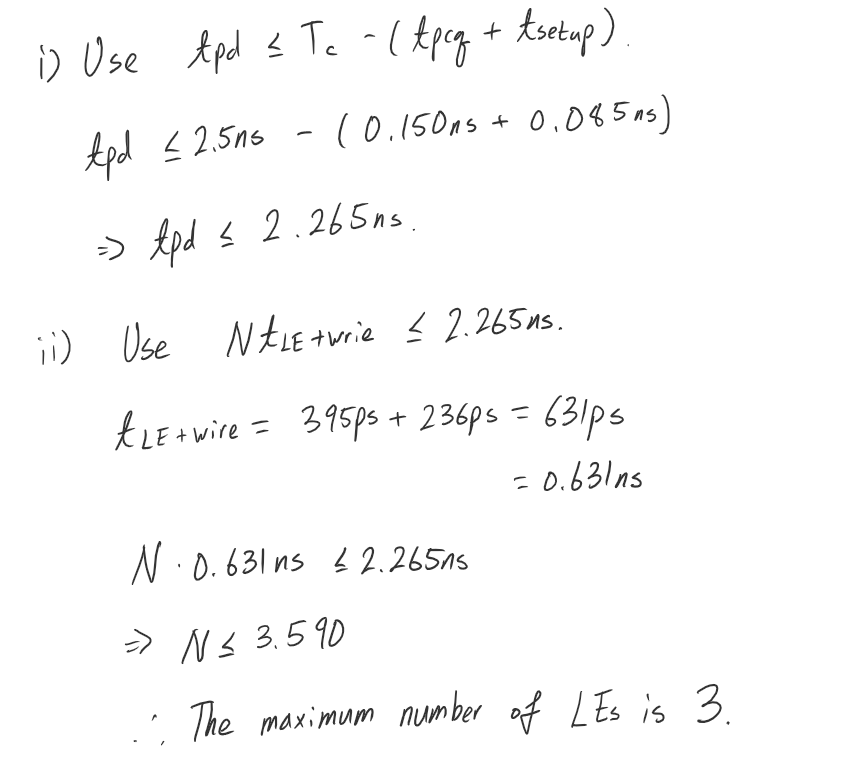 i) Use tpd ≤ Tc - (tpcq + tsetup).
tpd ≤ 2.5ns - (0.150ns + 0.085ns)
⇒ tpd ≤ 2.265ns.
ii) Use NtLE+wrie ≤ 2.265ns.
tLE+wire = 395ps + 236ps = 631ps
= 0.631ns
N · 0.631ns ≤ 2.265ns
⇒ N ≤ 3.590
∴ The maximum number of LEs is 3.